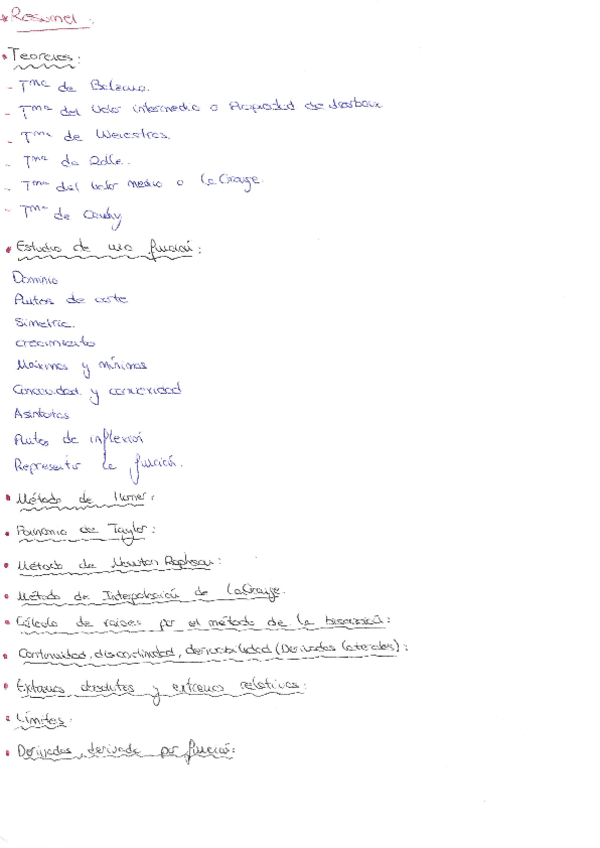 * Resumen:
• Teoremas:
- Tma de Bolzano.
- Tma del Valor intermedio o Propiedad de Darboux
- Tma de Weierstrass.
- Tma de Rolle.
- Tma del Valor medio o LaGrange.
- Tma de Cauchy
• Estudio de una función:
Dominio
Puntos de corte
Simetria.
crecimiento
Máximos y mínimos
Concavidad y convexidad
Asintotas
Puntos de inflexión
Representar la función.
• Método de Horner:
• Polinomio de Taylor:
• Método de Newton Raphson:
• Método de Interpolación de LaGrange.
• Cálculo de raices por el método de la bisección:
• Continuidad, discontinuidad, derivabilidad (Derivadas laterales):
• Extremos absolutos y extremos relativos:
• Límites:
• Derivadas, derivada por función: